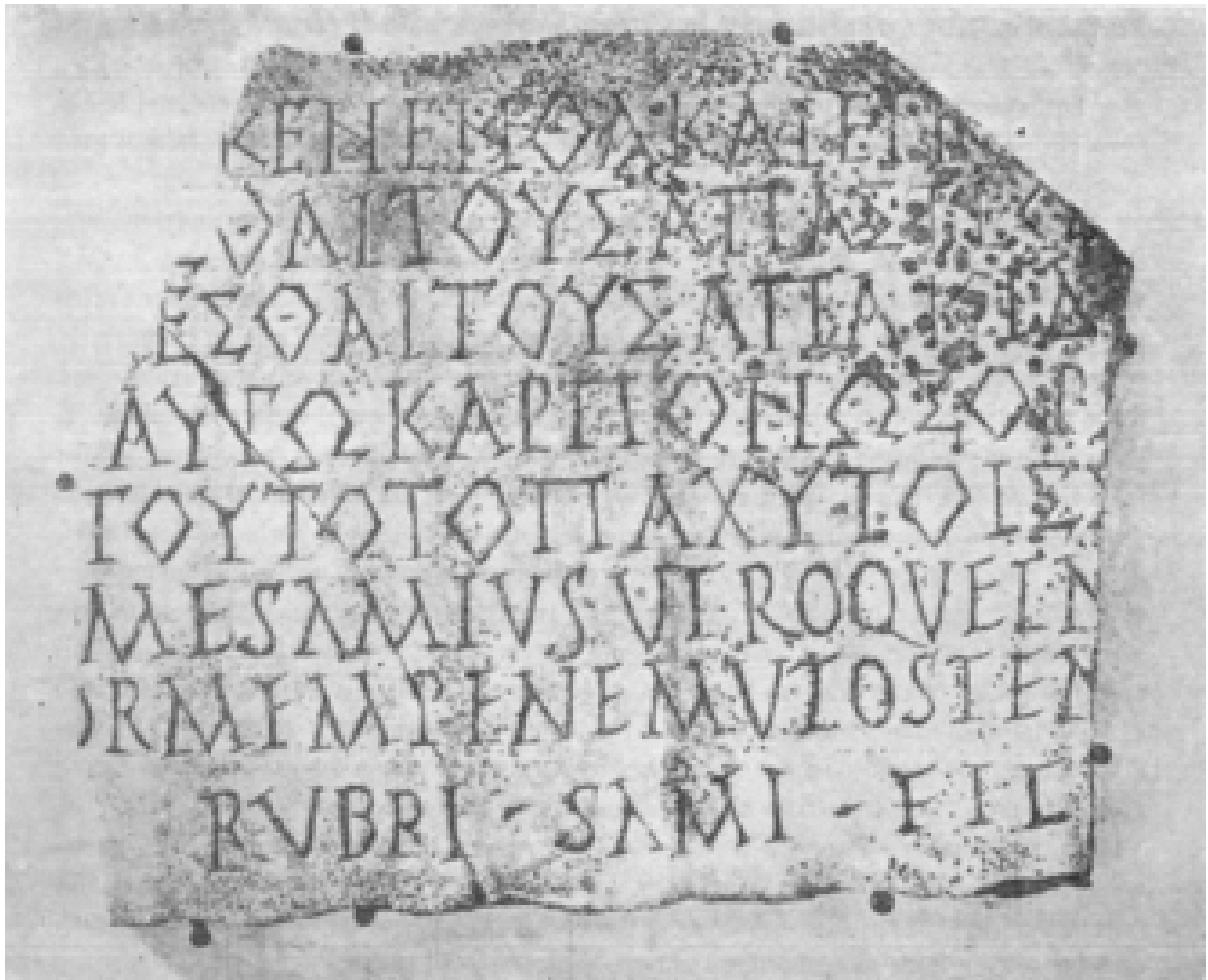 ΚΕΝΕΝΘΑΚΑΙΕΠ
ΘΑΙΤΟΥΣΑΠΑΣ
ΕΣΘΑΙΤΟΥΣΑΠΕΛ
ΑΥΤΩΚΑΡΠΩΝΩΣΟΡ
ΤΟΥΤΩΤΟΠΑΧΥΤΟΙΣ
MESAMIUSVEROQVEIN
ORMEMPENEMVTOSTEN
RVBRI - SAMI - FIL